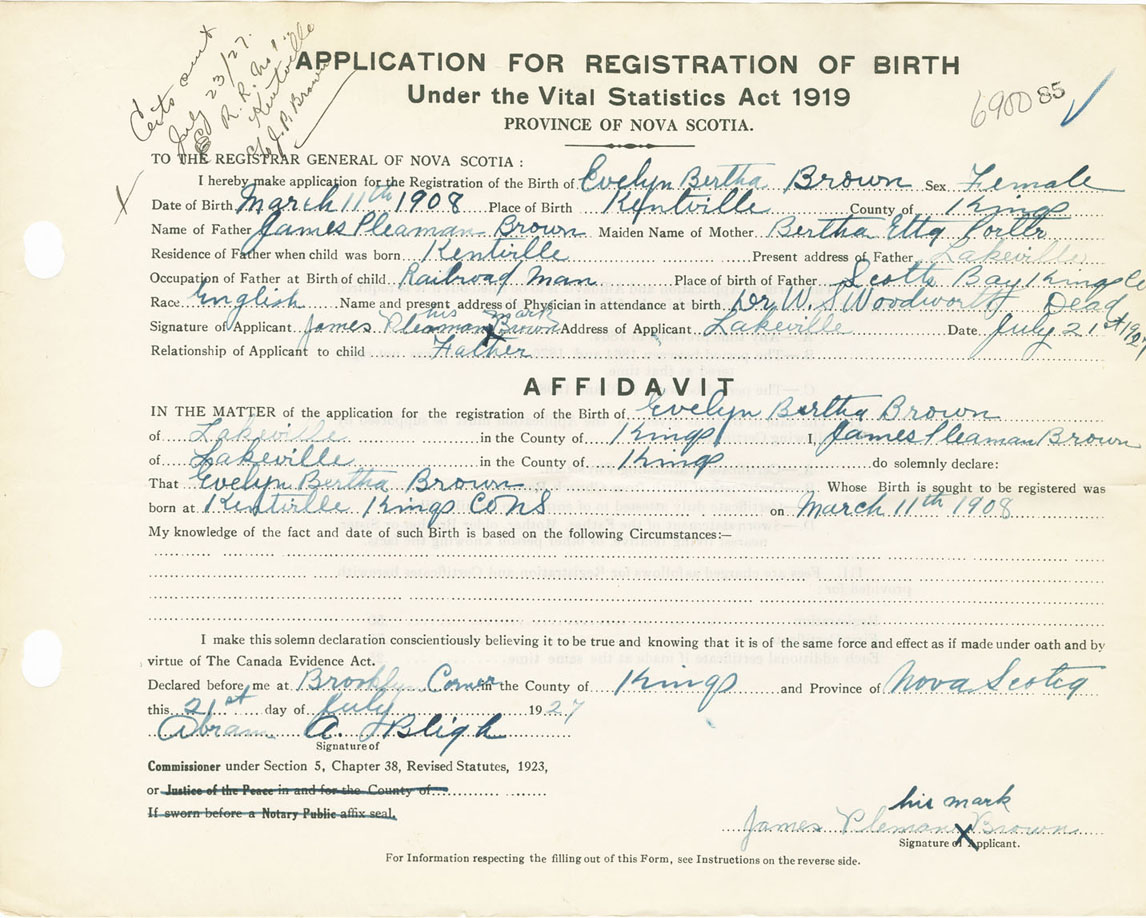 Certs sent
July 23/27.
R. R. No 1
Kentville
c/o J. P. Brown
APPLICATION FOR REGISTRATION OF BIRTH
690085
Under the Vital Statistics Act 1919
PROVINCE OF NOVA SCOTIA.
TO THE REGISTRAR GENERAL OF NOVA SCOTIA :
I hereby make application for the Registration of the Birth of Evelyn Bertha Brown Sex Female
Date of Birth March 11th 1908 Place of Birth Kentville County of Kings
Name of Father James Pleaman Brown Maiden Name of Mother Bertha Etta Porter
Residence of Father when child was born Kentville Present address of Father Lakeville
Occupation of Father at Birth of child Railroad Man Place of birth of Father Scotts Bay Kings Co
Race English Name and present address of Physician in attendance at birth Dr W. S Woodworth Dead
his mark
Signature of Applicant James Pleaman X Brown Address of Applicant Lakeville Date July 21st 1927
Relationship of Applicant to child Father
AFFIDAVIT
IN THE MATTER of the application for the registration of the Birth of Evelyn Bertha Brown
of Lakeville in the County of Kings I, James Pleaman Brown
of Lakeville in the County of Kings do solemnly declare:
That Evelyn Bertha Brown Whose Birth is sought to be registered was
born at Kentville Kings Co NS on March 11th 1908
My knowledge of the fact and date of such Birth is based on the following Circumstances:—
I make this solemn declaration conscientiously believing it to be true and knowing that it is of the same force and effect as if made under oath and by
virtue of The Canada Evidence Act.
Declared before me at Brooklyn Corner in the County of Kings and Province of Nova Scotia
this 21st day of July 1927
Abram A. Bligh
Signature of
Commissioner under Section 5, Chapter 38, Revised Statutes, 1923,
or Justice of the Peace in and for the County of
If sworn before a Notary Public affix seal.
his mark
James Pleman X Brown
Signature of Applicant.
For Information respecting the filling out of this Form, see Instructions on the reverse side.